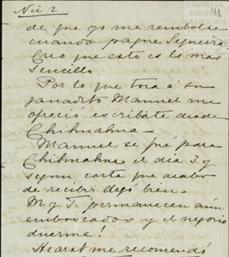 Nú 2
de que yo me rembolse
cuando pague Segueira
Creo que esto es lo mas
sencillo.
Por lo que toca á su
ganadito Manuel me
ofreció escribirle desde
Chihuahua
Manuel se fué para
Chihuahua el dia 3 y
segun carta que acabo
de recibir llegó bien.
M y T. permanecen aún
emboscados y el negocio
duerme!
Hearst me recomendó